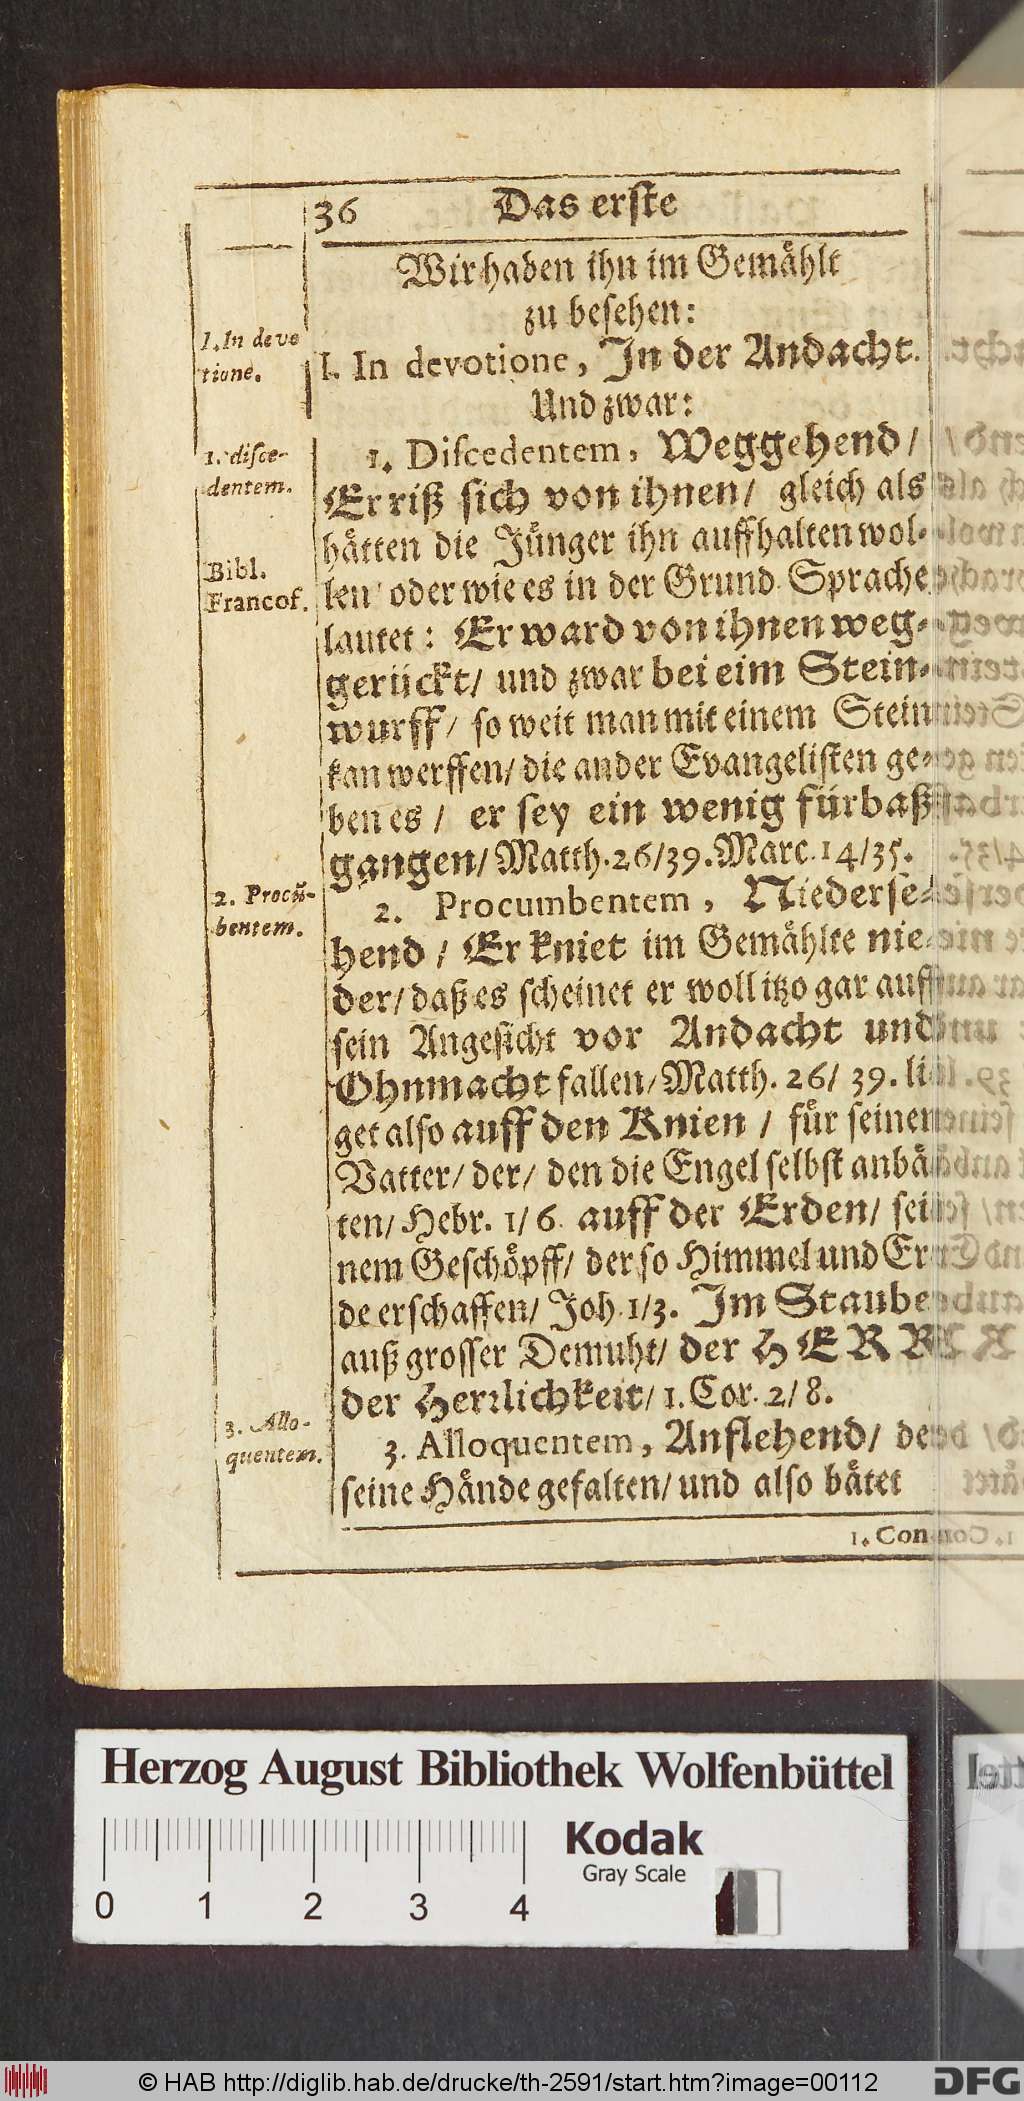 36 Das erste
Wir haben ihn im Gemåhlt
zu besehen:
I. In devotione, In der Andacht.
Und zwar:
1. Discedentem, Weggehend/
Er riß sich von ihnen/ gleich als
håtten die Jůnger ihn auffhalten wol-
len/ oder wie es in der Grund Sprache
lautet: Er ward von ihnen weg-
gerückt/ und zwar bei eim Stein-
wurff/ so weit man mit einem Stein
kan werffen/ die ander Evangelisten ge-
ben es/ er sey ein wenig fürbaß
gangen/ Matth. 26/39. Marc. 14/35.
2. Procumbentem, Niederse-
hend/ Er kniet im Gemåhlte nie-
der/ daß es scheinet er woll itzo gar auff
sein Angesicht vor Andacht und
Ohnmacht fallen/ Matth. 26/ 39. li-
get also auff den Knien / fůr seinen
Vatter/ der/ den die Engel selbst anbå-
ten/ Hebr. 1/6. auff der Erden/ sei-
nem Geschöpff/ der so Himmel und Er-
de erschaffen/ Joh. 1/3. Im Staube
auß grosser Demuht/ der HERR
der Herrlichkeit/ 1. Cor. 2/8.
3. Alloquentem, Anflehend/ den
seine Hånde gefalten/ und also båtet
1. Con-
1. In devo
tione.
1. disce-
dentem.
Bibl.
Francof.
2. Procũ-
bentem.
3. Allo-
quentem.
Herzog August Bibliothek Wolfenbüttel
Kodak
Gray Scale
0 1 2 3 4
© HAB http://diglib.hab.de/drucke/th-2591/start.htm?image=00112
DFG